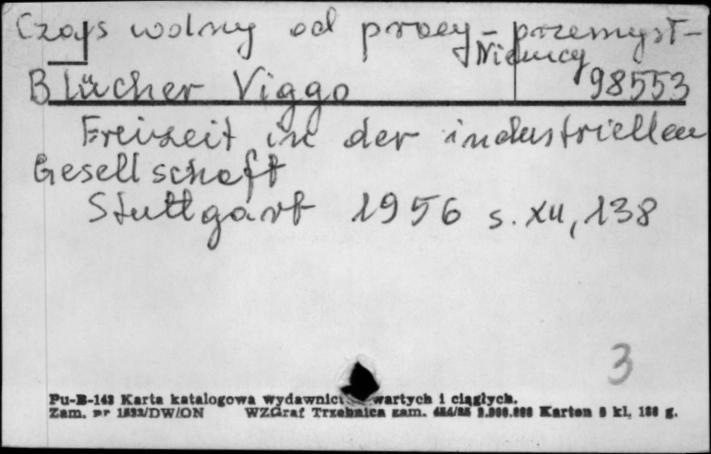 Czas wolny od pracy – przemysł –
Niemcy
Blücher Viggo 98553
Freizeit in der industriellen
Gesellschaft
Stuttgart 1956 s. XII, 138
3
Pu-B-143 Karta katalogowa wydawnict wartych i ciągłych.
Zam. nr 1532/DW/ON WZGraf Trzebnica zam. Karton kl. g.